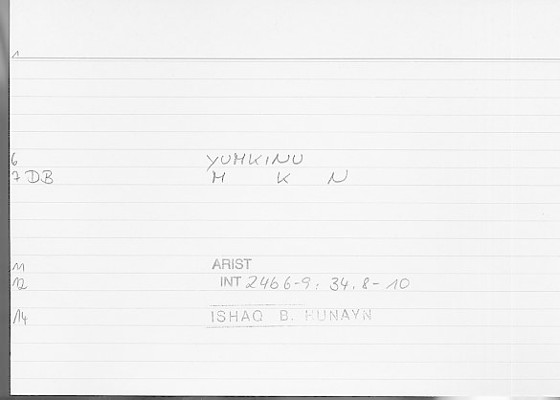 1
6 YUMKINU
7 DB M K N
11 ARIST
12 INT 2466-9; 34,8-10
14 ISHAQ B. HUNAYN